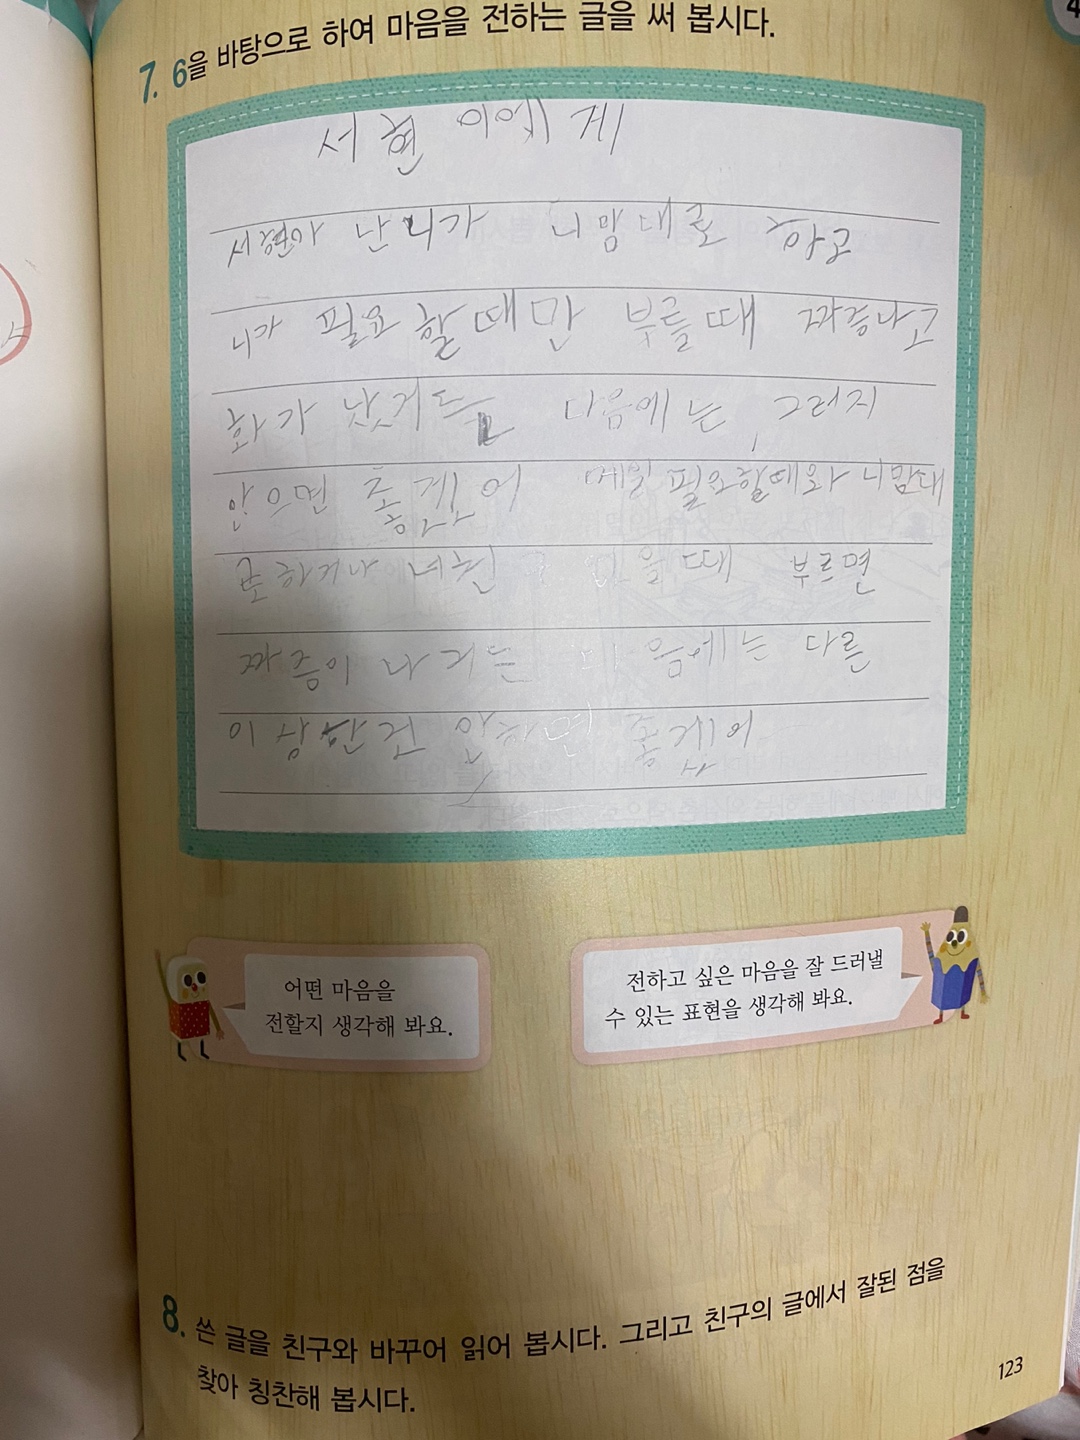 7. 6을 바탕으로 하여 마음을 전하는 글을 써 봅시다.
서현 이에게
서현아 난 니가 니맘대로 하고
니가 필요할때만 부를때 짜증나고
화가 났거든 다음에는 그러지
안으면 좋겠어 매일 필요할때와 니맘대
로하거나 부르면
짜증이 나거든 다음에는 다른
이상한건 안하면 좋겠어
어떤 마음을
전할지 생각해 봐요.
전하고 싶은 마음을 잘 드러낼
수 있는 표현을 생각해 봐요.
8. 쓴 글을 친구와 바꾸어 읽어 봅시다. 그리고 친구의 글에서 잘된 점을
찾아 칭찬해 봅시다.
123